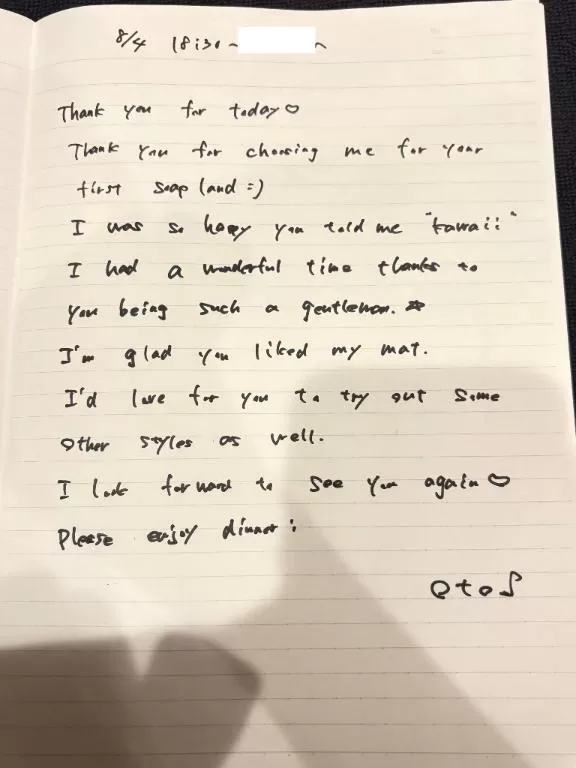 8/4 18:30~ ~
Thank you for today♡
Thank you for choosing me for your
first soap (and :)
I was so happy you told me "kawaii"
I had a wonderful time thanks to
you being such a gentleman. ☆
I'm glad you liked my mat.
I'd love for you to try out some
other styles as well.
I look forward to see you again♡
Please enjoy dinner: